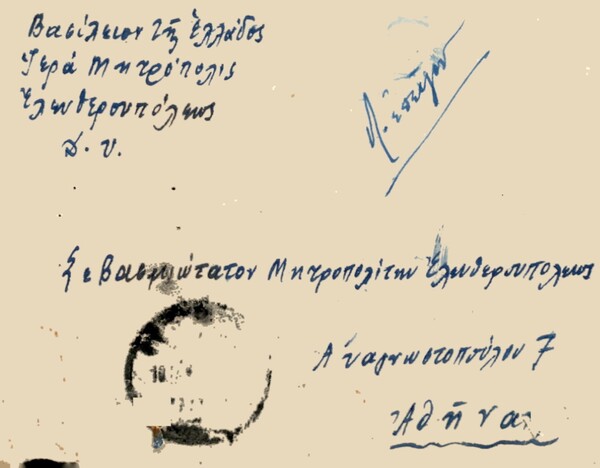 Βασίλειον τῆς Ἑλλάδος
Ἱερά Μητρόπολις
Ἐλευθερουπόλεως
Δ. Υ.
Λ. ἐπεῖγον
Σεβασμιώτατον Μητροπολίτην Ἐλευθερουπόλεως
Ἀναγνωστοπούλου 7
Ἀθήνας